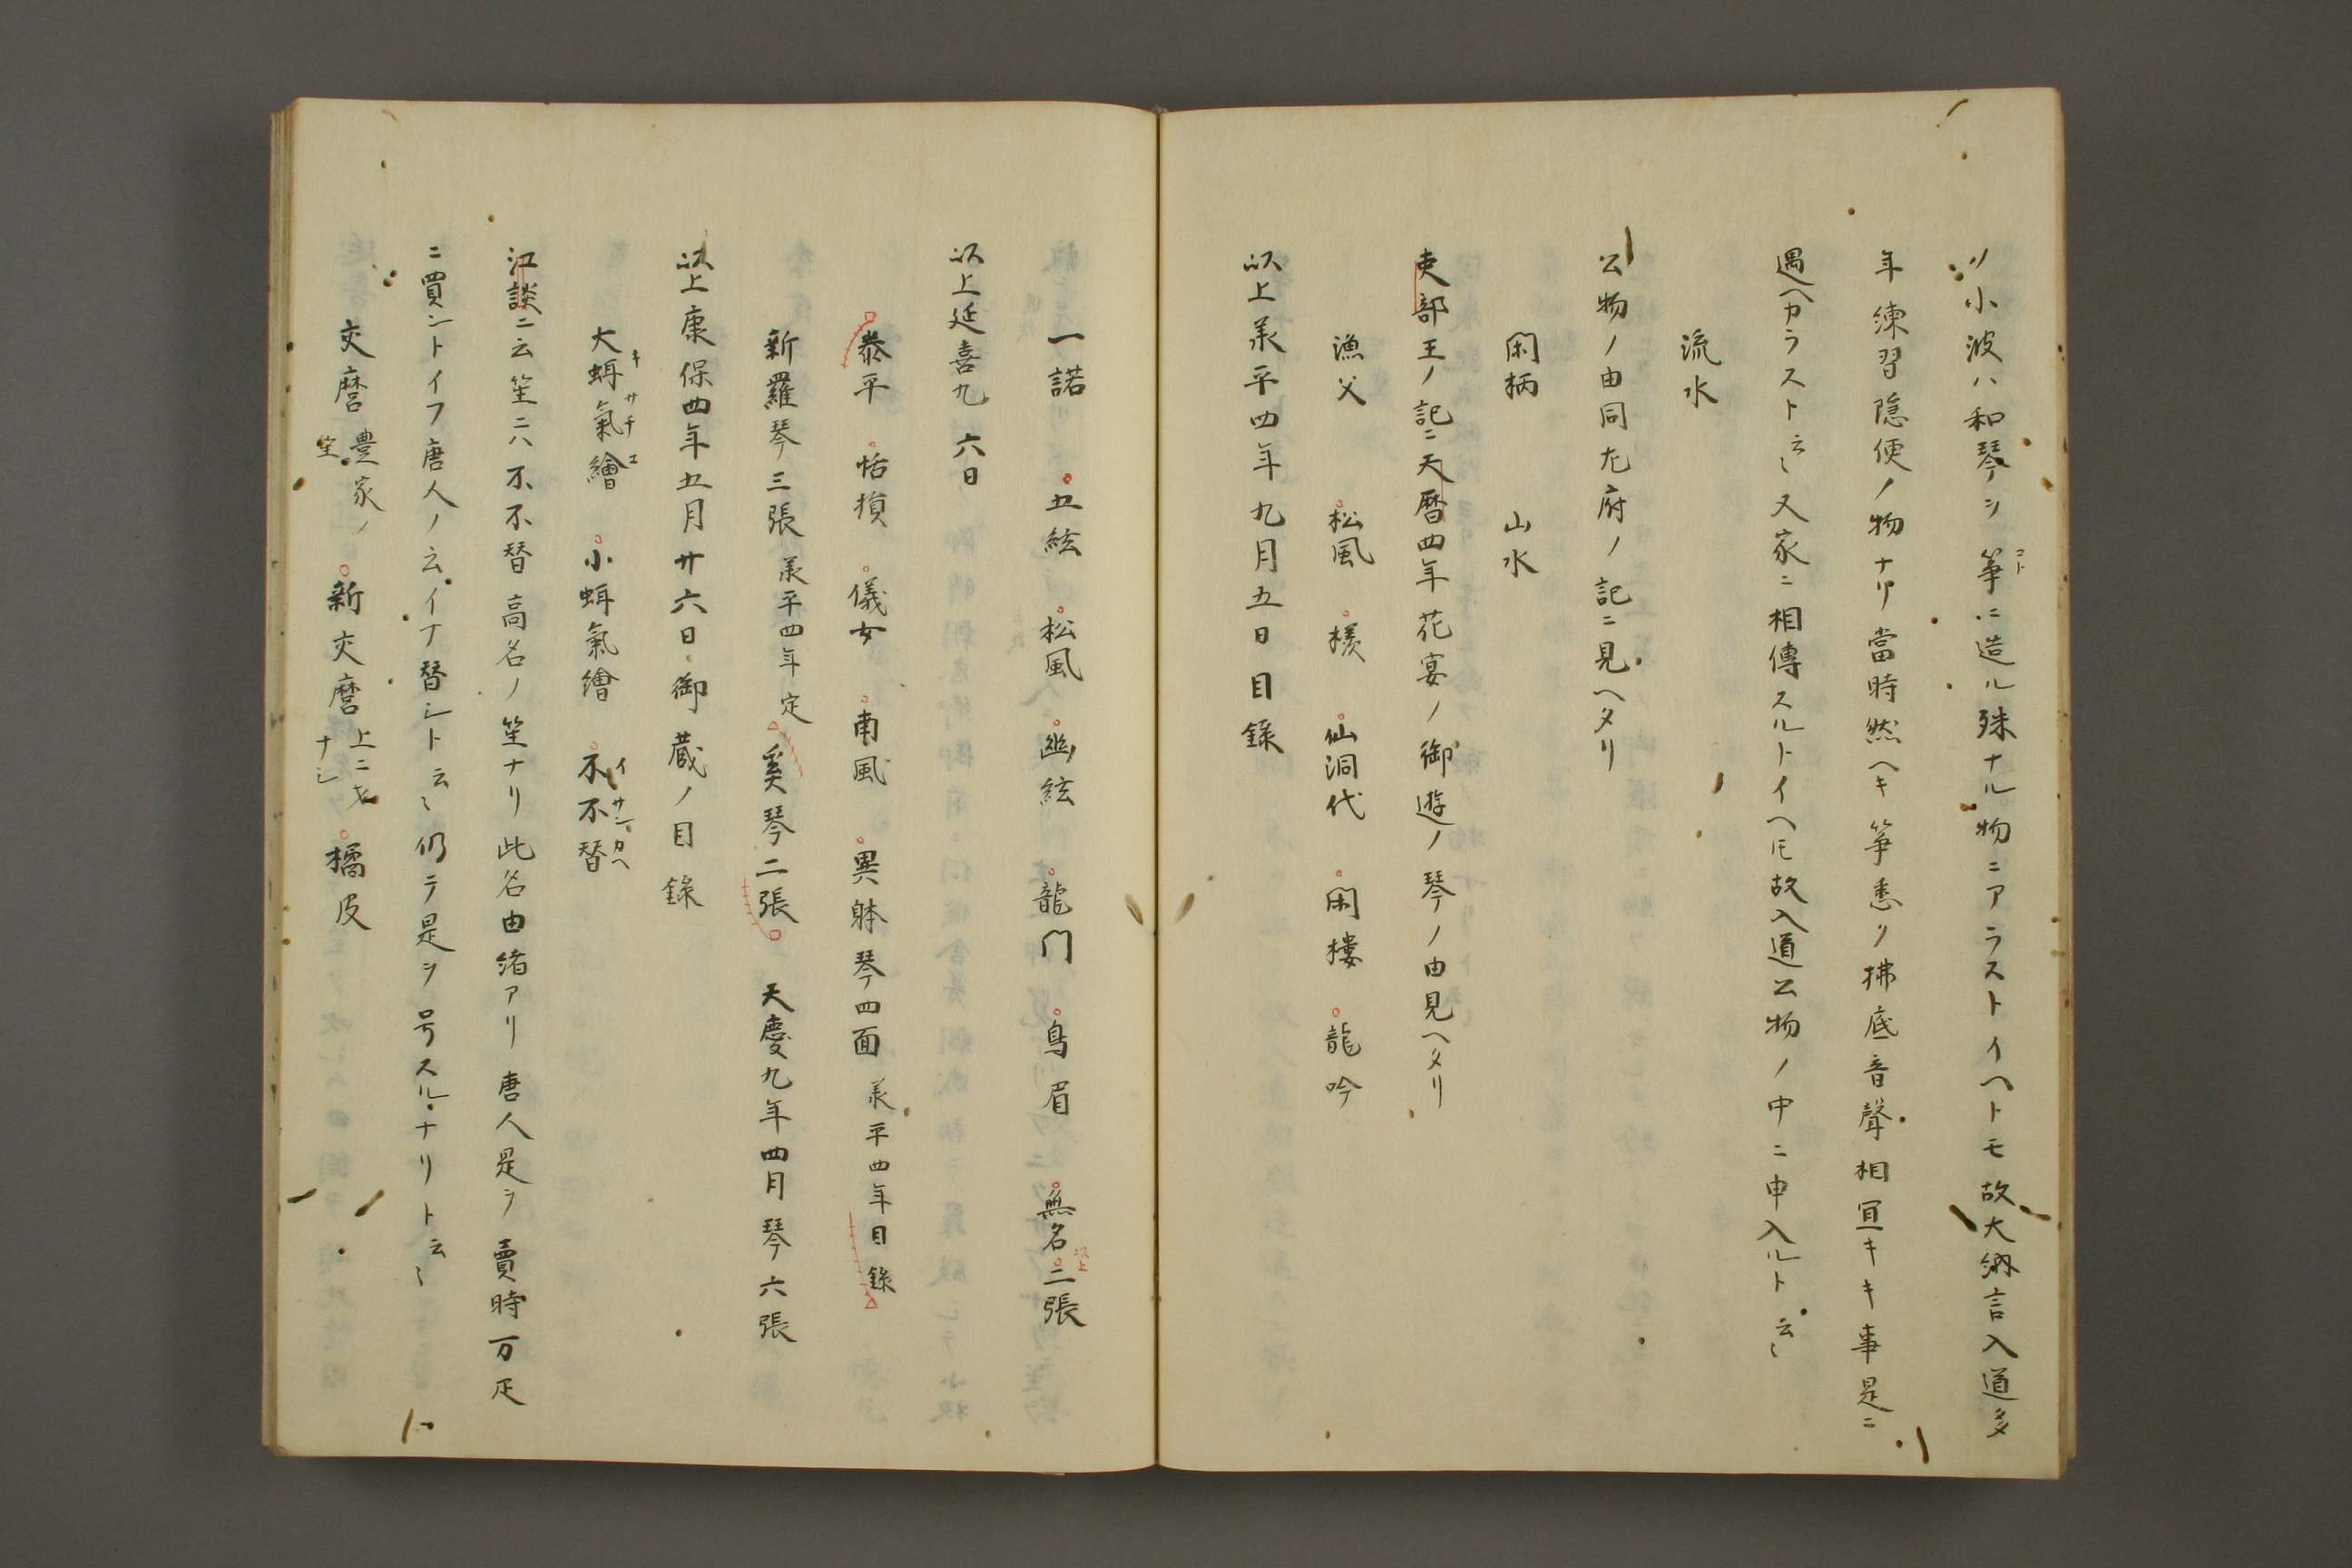 小波ハ和琴ヲ箏ニ造ル殊ナル物ニアラストイヘトモ故大納言入道多
年練習隠便ノ物ナリ當時然ヘキ箏悉ク拂底音聲相冝キキ事是ニ
過ヘカラスト云〻又家ニ相傳スルトイヘ𪜈故入道公物ノ中ニ申入ルト云〻
流水
公物ノ由同左府ノ記ニ見ヘタリ
閑柄 山水
吏部王ノ記ニ天暦四年花宴ノ御遊ノ琴ノ由見ヘタリ
漁父 松風 様 仙洞代 閑樓 龍吟
以上承平四年九月五日目錄
一諾 五絃 松風 幽絃 龍門 鳥眉 無名 以上二張
以上延喜九 六日
泰平 恬損 儀女 南風 異躰琴四面 承平四年目錄
新羅琴三張 承平四年定 奚琴二張 天慶九年四月琴六張
以上康保四年五月廿六日御蔵ノ目錄
大蚶氣繪 小蚶氣繪 不不替
江談ニ云笙ニハ不不替高名ノ笙ナリ此名由緒アリ唐人是ヲ賣時万疋
ニ買ントイフ唐人ノ云イナ替シト云〻仍テ是ヲ号スルナリト云〻
交麿 豊家ノ笙 新交麿 上ニ才ナシ 橘皮